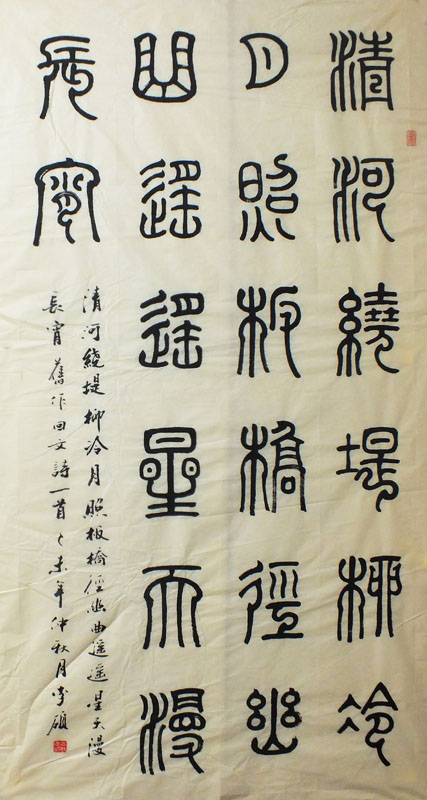 清河繞堤柳冷
月照板橋徑幽
曲遥遥星天漫
長宵
清河繞堤柳冷月照板橋徑幽曲遥遥星天漫
長宵 舊作回文詩一首 乙未年仲秋月李碩